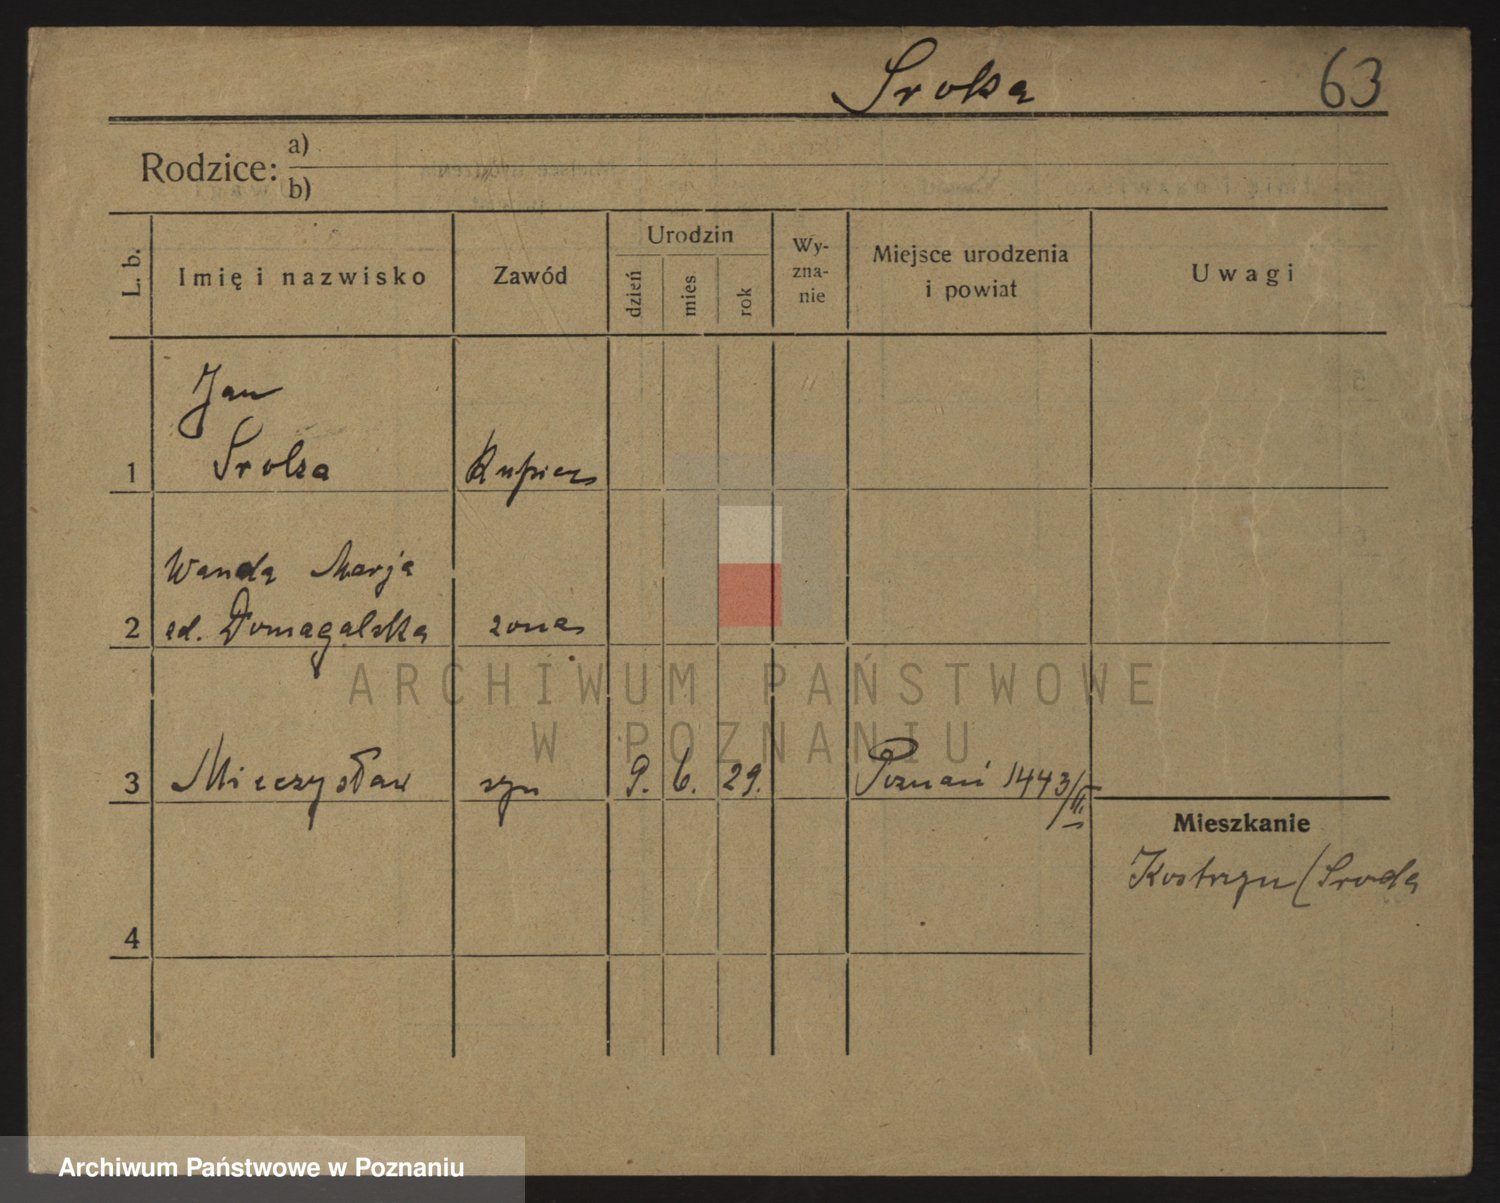 Sroka 63
Rodzice: a)
b)
L. b.
Imię i nazwisko
Zawód
Urodzin
dzień
mies
rok
Wy-
zna-
nie
Miejsce urodzenia
i powiat
Uwagi
Jan
1 Sroka Kupiec
Wanda Marja
2 zd. Domagalska żona
ARCHIWUM PAŃSTWOWE
W POZNANIU
3 Mieczysław syn 9. 6. 29. Poznań 1443/III.
Mieszkanie
Kostrzyn (Sroda
4
Archiwum Państwowe w Poznaniu